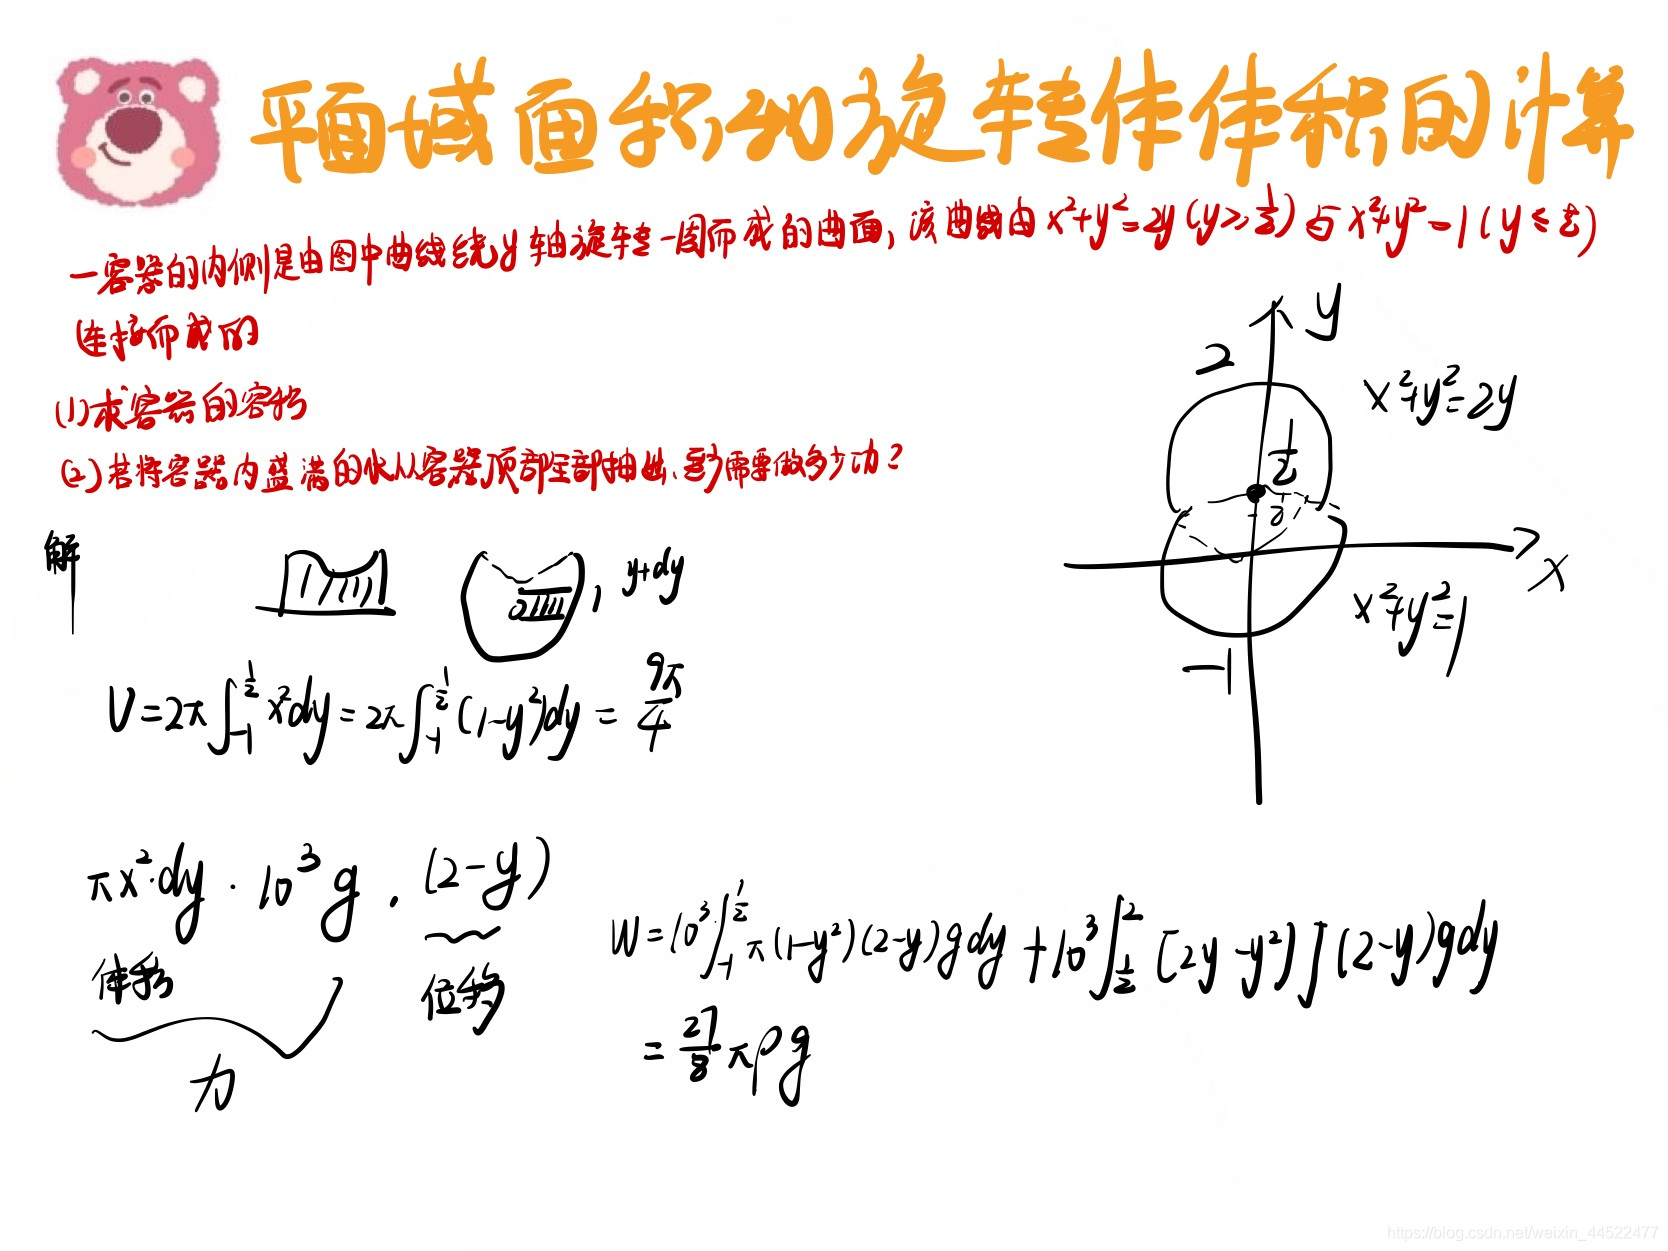 平面域面积和旋转体体积的计算
一容器的内侧是由图中曲线绕y轴旋转一周而成的曲面,该曲线由x²+y²=2y(y≥1/2)与x²+y²=1(y≤1/2)
连接而成的
(1)求容器的容积
(2)若将容器内盛满的水从容器顶部全部抽出,至少需要做多少功?
y
2
x²+y²=2y
1/2
x
x²+y²=1
-1
解
y+dy
V=2π∫_{-1}^{1/2}x²dy=2π∫_{-1}^{1/2}(1-y²)dy=9π/4
πx²·dy·10³g.(2-y)
体积
位移
力
W=10³∫_{-1}^{1/2}π(1-y²)(2-y)gdy+10³∫_{1/2}^{2}[2y-y²)](2-y)gdy
=27/8πρg
https://blog.csdn.net/weixin_44522477